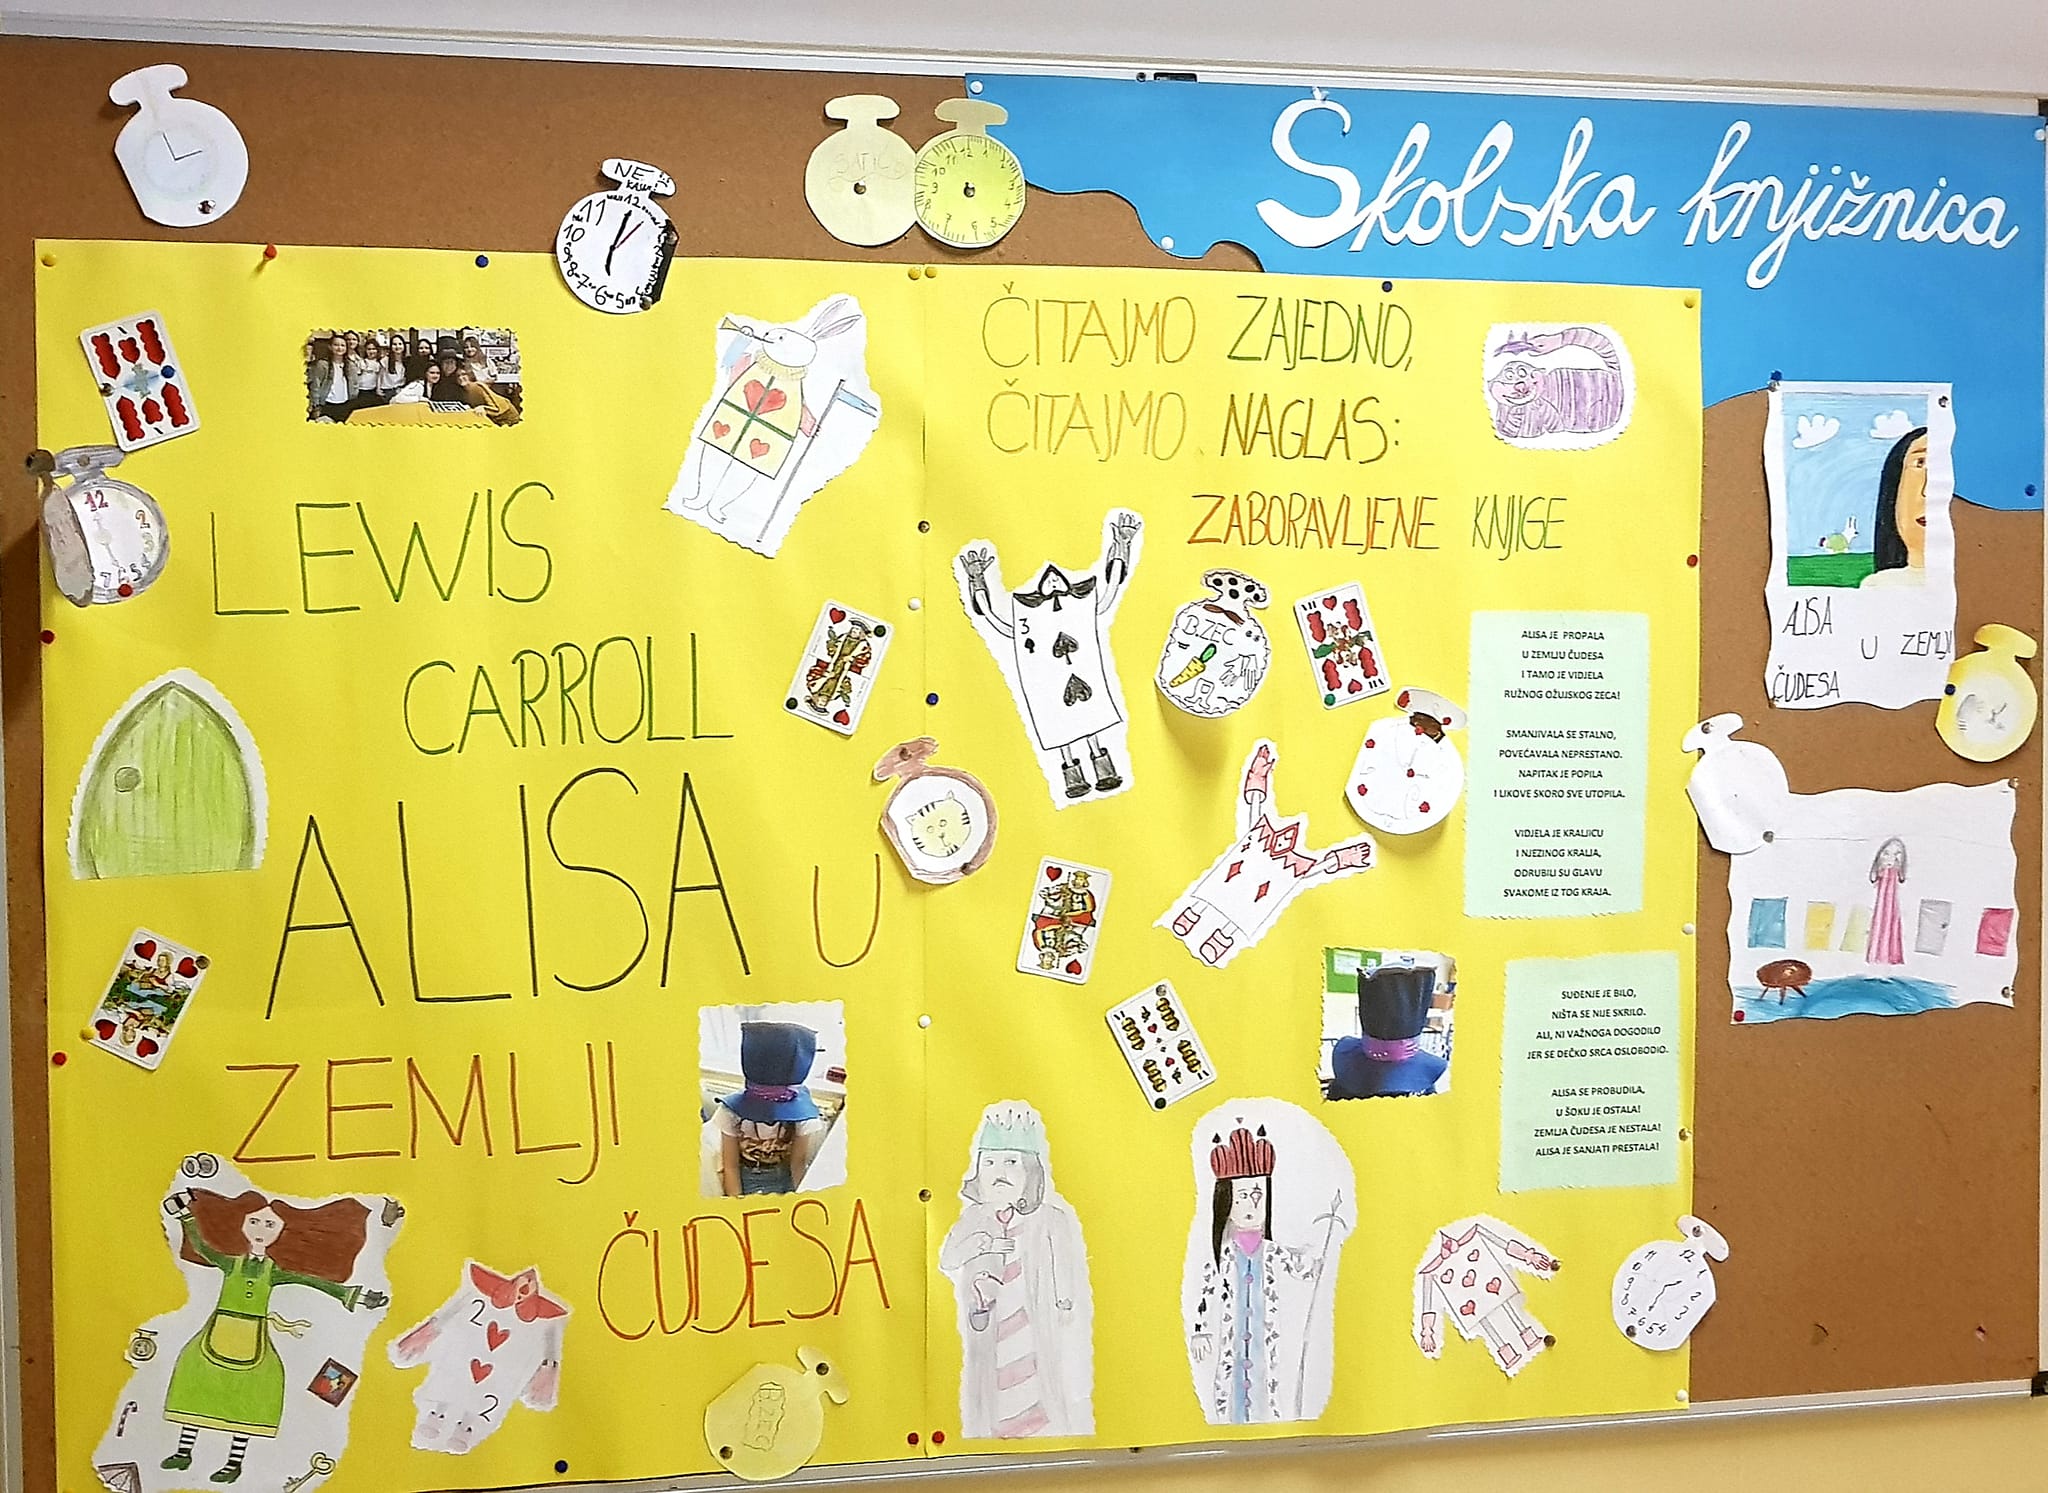 Školska knjižnica
NE
KASNI!
ČITAJMO ZAJEDNO,
ČITAJMO NAGLAS:
ZABORAVLJENE KNJIGE
LEWIS
CARROLL
ALISA U
ZEMLJI
ČUDESA
B.ZEC
3
2
2
VII
VII
ALISA JE PROPALA
U ZEMLJU ČUDESA
I TAMO JE VIDJELA
RUŽNOG OŽUJSKOG ZECA!
SMANJIVALA SE STALNO,
POVEĆAVALA NEPRESTANO.
NAPITAK JE POPILA
I LIKOVE SKORO SVE UTOPILA.
VIDJELA JE KRALJICU
I NJEZINOG KRALJA,
ODRUBILI SU GLAVU
SVAKOME IZ TOG KRAJA.
SUĐENJE JE BILO,
NIŠTA SE NIJE SKRILO.
ALI, NI VAŽNOGA DOGODILO
JER SE DEČKO SRCA OSLOBODIO.
ALISA SE PROBUDILA,
U ŠOKU JE OSTALA!
ZEMLJA ČUDESA JE NESTALA!
ALISA JE SANJATI PRESTALA!
ALISA
U ZEMLJI
ČUDESA